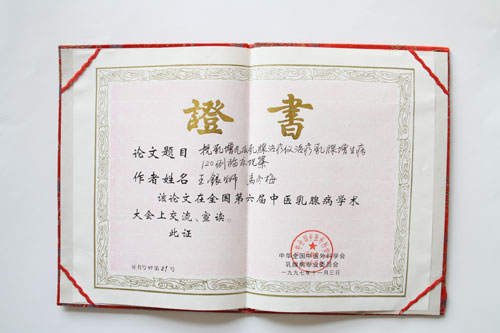 證書
论文题目 乳增 乳腺治疗仪治疗乳腺增生病
120例临床观察
作者姓名 王银 高冬梅
该论文在全国第六届中医乳腺病学术
大会上交流、宣读。
此证
中华全国中医外科学会
乳腺病专业委员会
一九九七年十一月三日
证书号97第21号